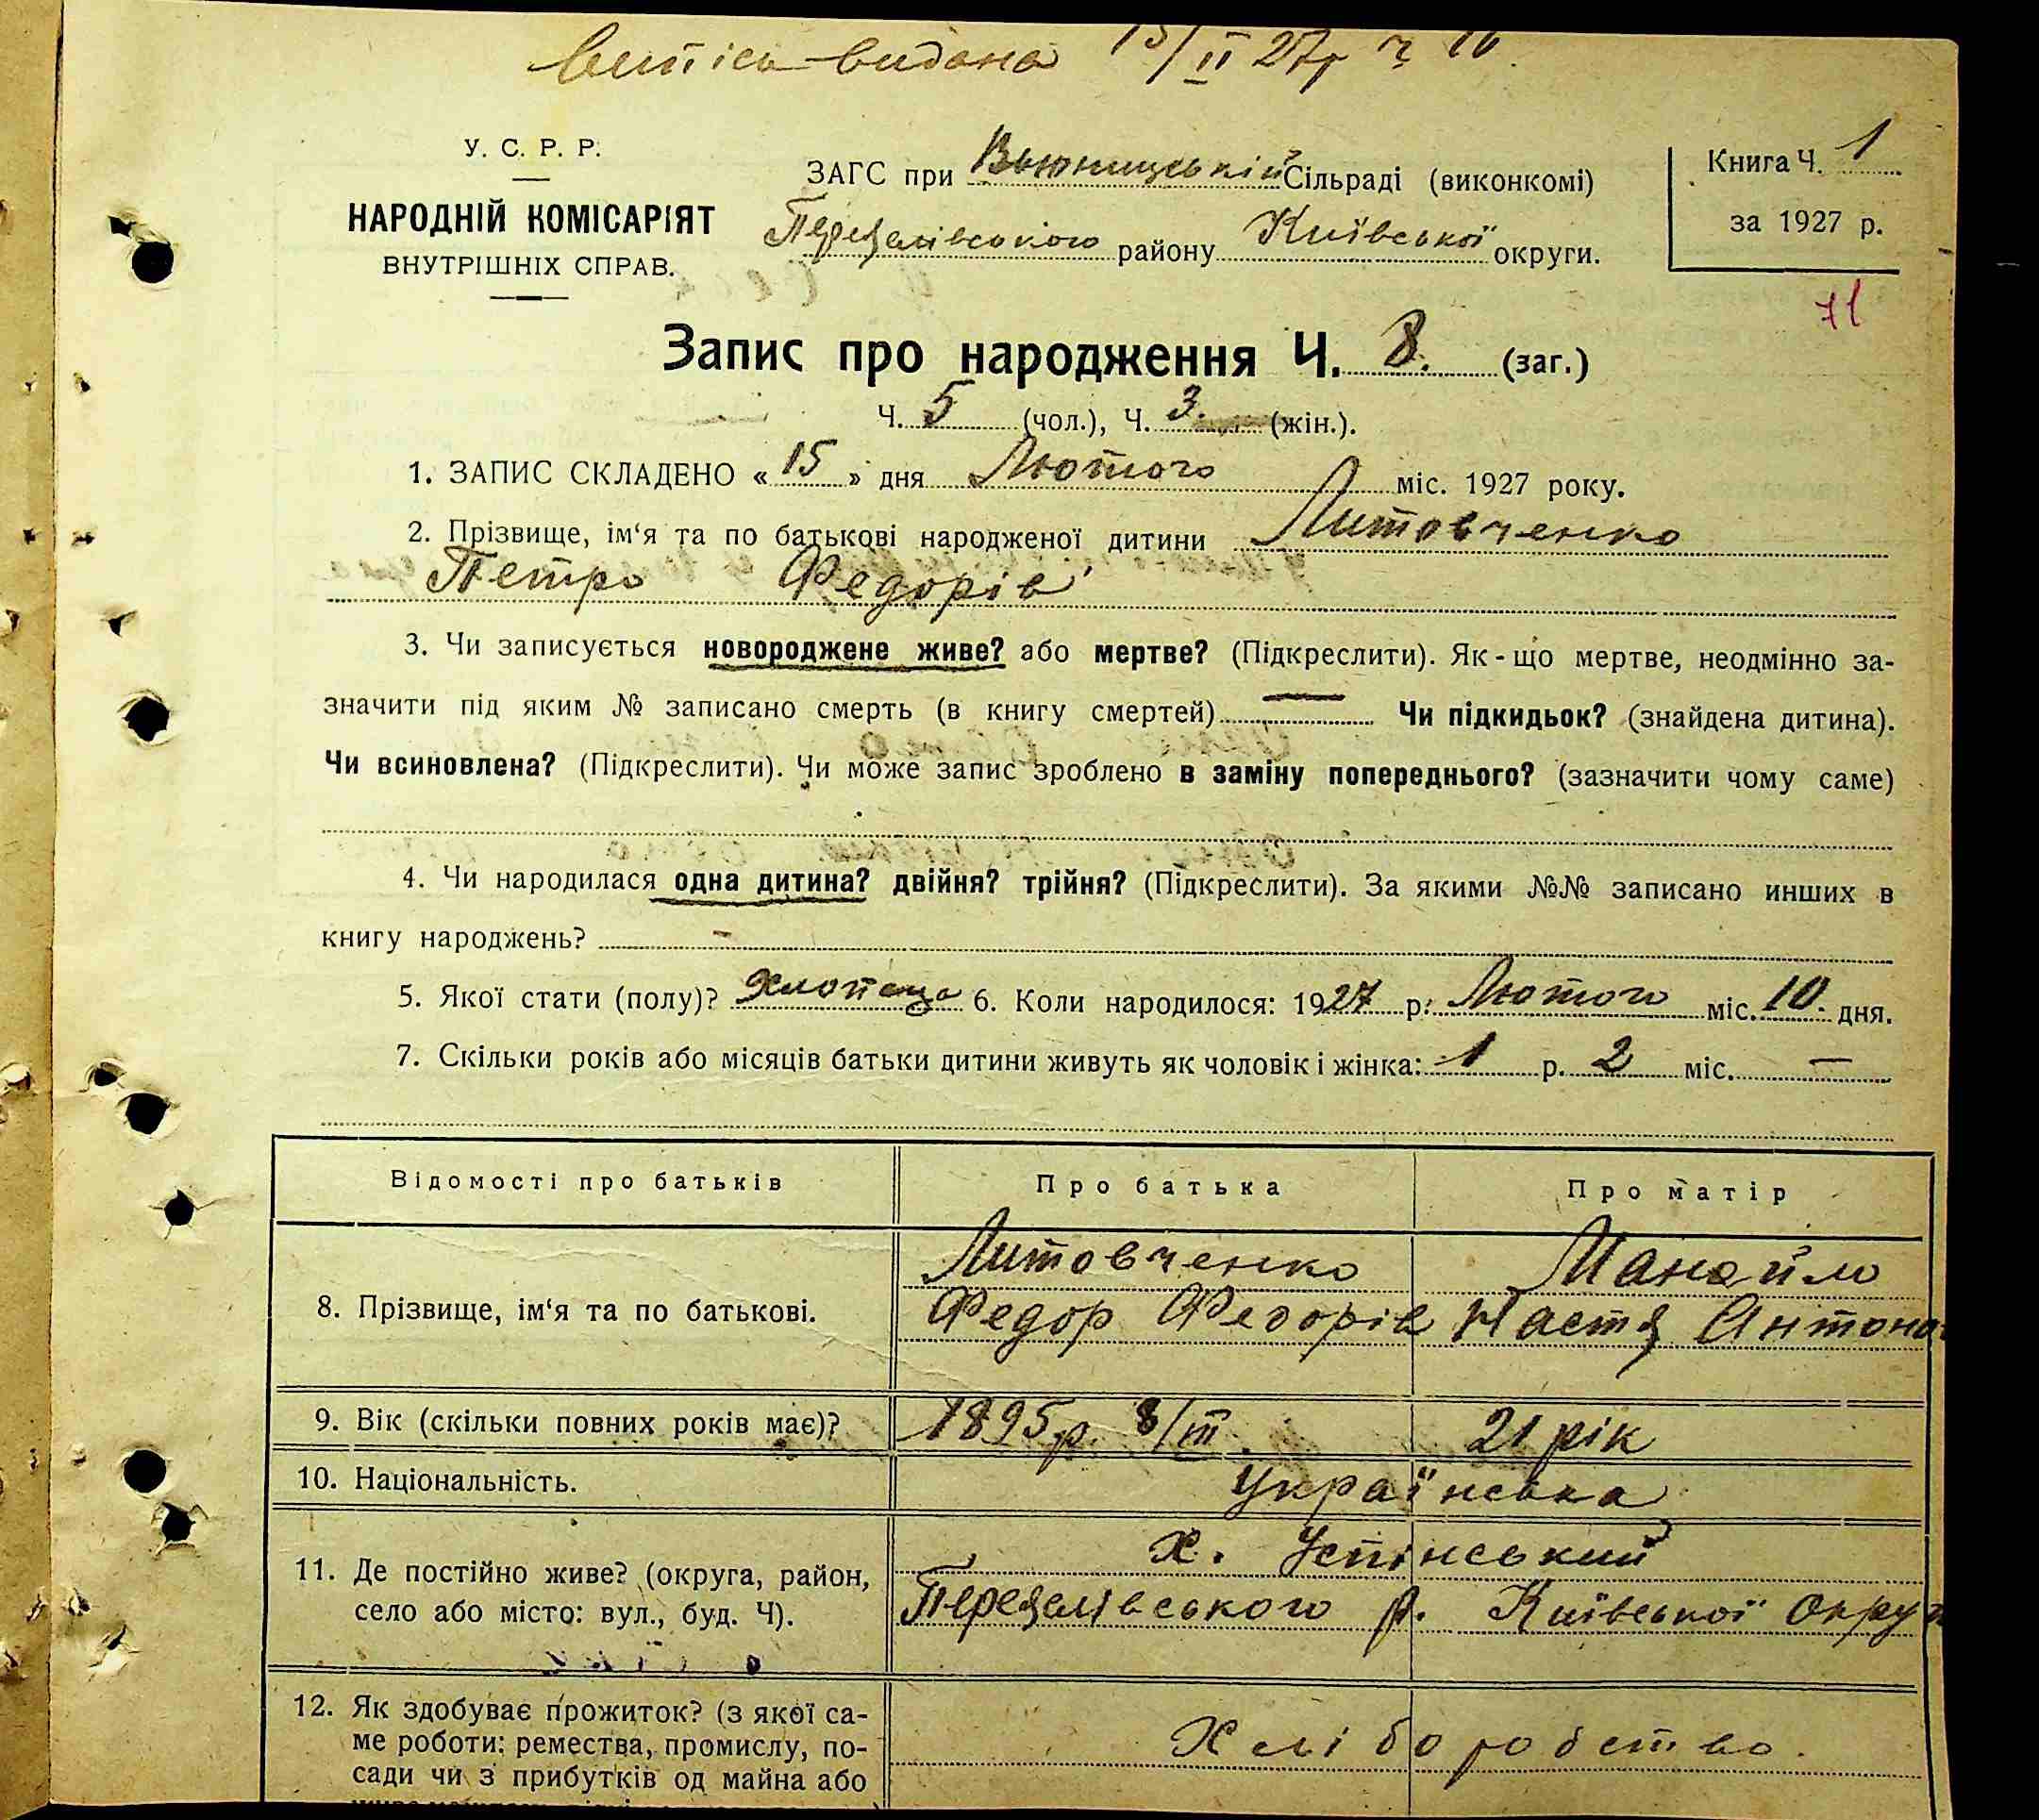 витіс видана 15/II 27р ч 16.
У. С. Р. Р.
НАРОДНІЙ КОМІСАРІЯТ
ВНУТРІШНІХ СПРАВ.
ЗАГС при Вьюницській Сільраді (виконкомі)
Переяслівського району Київської округи.
Книга Ч. 1
за 1927 р.
71
Запис про народження Ч. 8. (заг.)
Ч. 5 (чол.), Ч. 3. (жін.).
1. ЗАПИС СКЛАДЕНО « 15 » дня Лютого міс. 1927 року.
2. Прізвище, ім‘я та по батькові народженої дитини Литовченко
Петро Федорів
3. Чи записується новороджене живе? або мертве? (Підкреслити). Як-що мертве, неодмінно за-
значити під яким № записано смерть (в книгу смертей) — Чи підкидьок? (знайдена дитина).
Чи всиновлена? (Підкреслити). Чи може запис зроблено в заміну попереднього? (зазначити чому саме)
4. Чи народилася одна дитина? двійня? трійня? (Підкреслити). За якими №№ записано инших в
книгу народжень? -
5. Якої стати (полу)? Хлопець 6. Коли народилося: 1927 р. Лютого міс. 10. дня.
7. Скільки років або місяців батьки дитини живуть як чоловік і жінка: 1 р. 2 міс. —
Відомості про батьків Про батька Про матір
Литовченко Манайло
8. Прізвище, ім‘я та по батькові. Федор Федорів Настя Антонов
9. Вік (скільки повних років має)? 1895р. 8/III. 21 рік
10. Національність. Українська
х. Успінський
11. Де постійно живе? (округа, район,
село або місто: вул., буд. Ч). Переяслівського р. Київської Округ
12. Як здобуває прожиток? (з якої са-
ме роботи: ремества, промислу, по- Хліборобство.
сади чи з прибутків од майна або